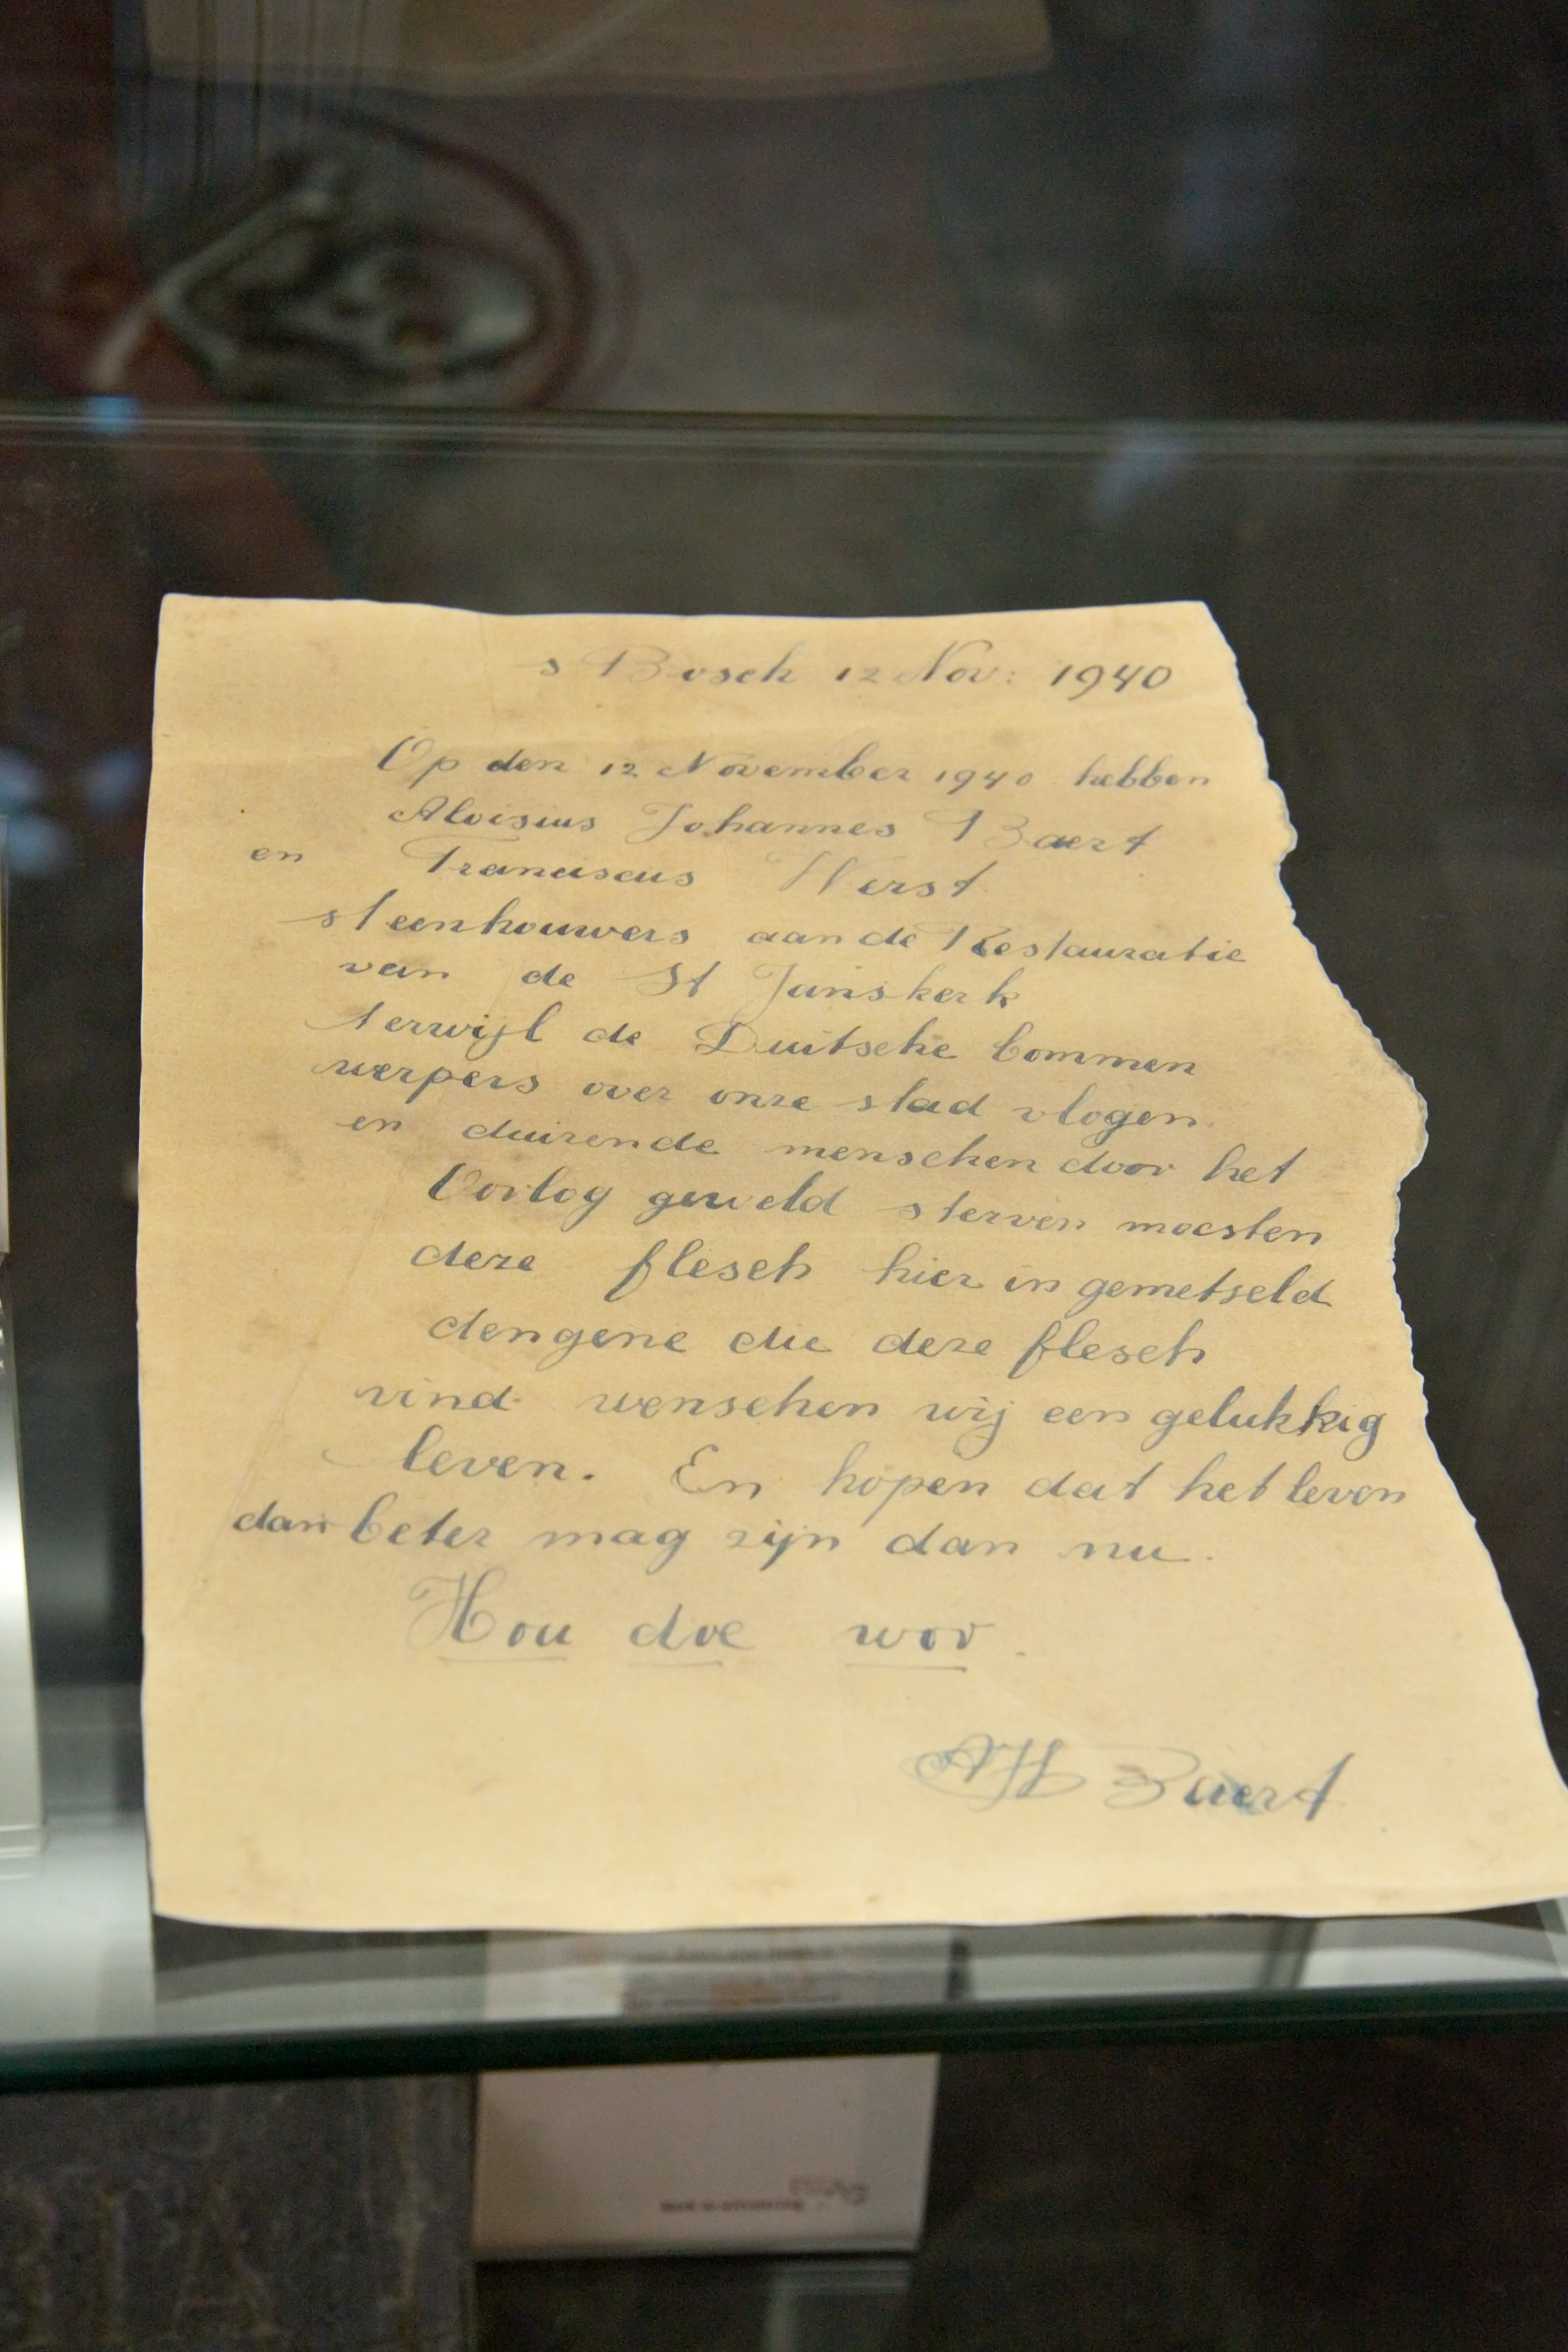 s Bosch 12 Nov: 1940
Op den 12 November 1940 hebben
Aloisius Johannes Baert
en Franciscus Werst
steenhouwers aan de Restauratie
van de St Janskerk
terwijl de Duitsche bommen
werpers over onze stad vlogen
en duizende menschen door het
Oorlog geweld sterven moesten
deze flesch hier in gemetseld
dengene die deze flesch
vind wenschen wij een gelukkig
leven. En hopen dat het leven
dan beter mag zijn dan nu.
Hou doe woor.
Baert